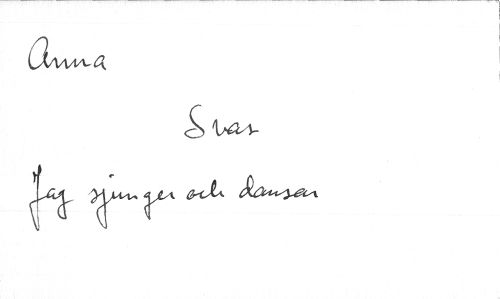 Anna
Svar
Jag sjunger och dansar